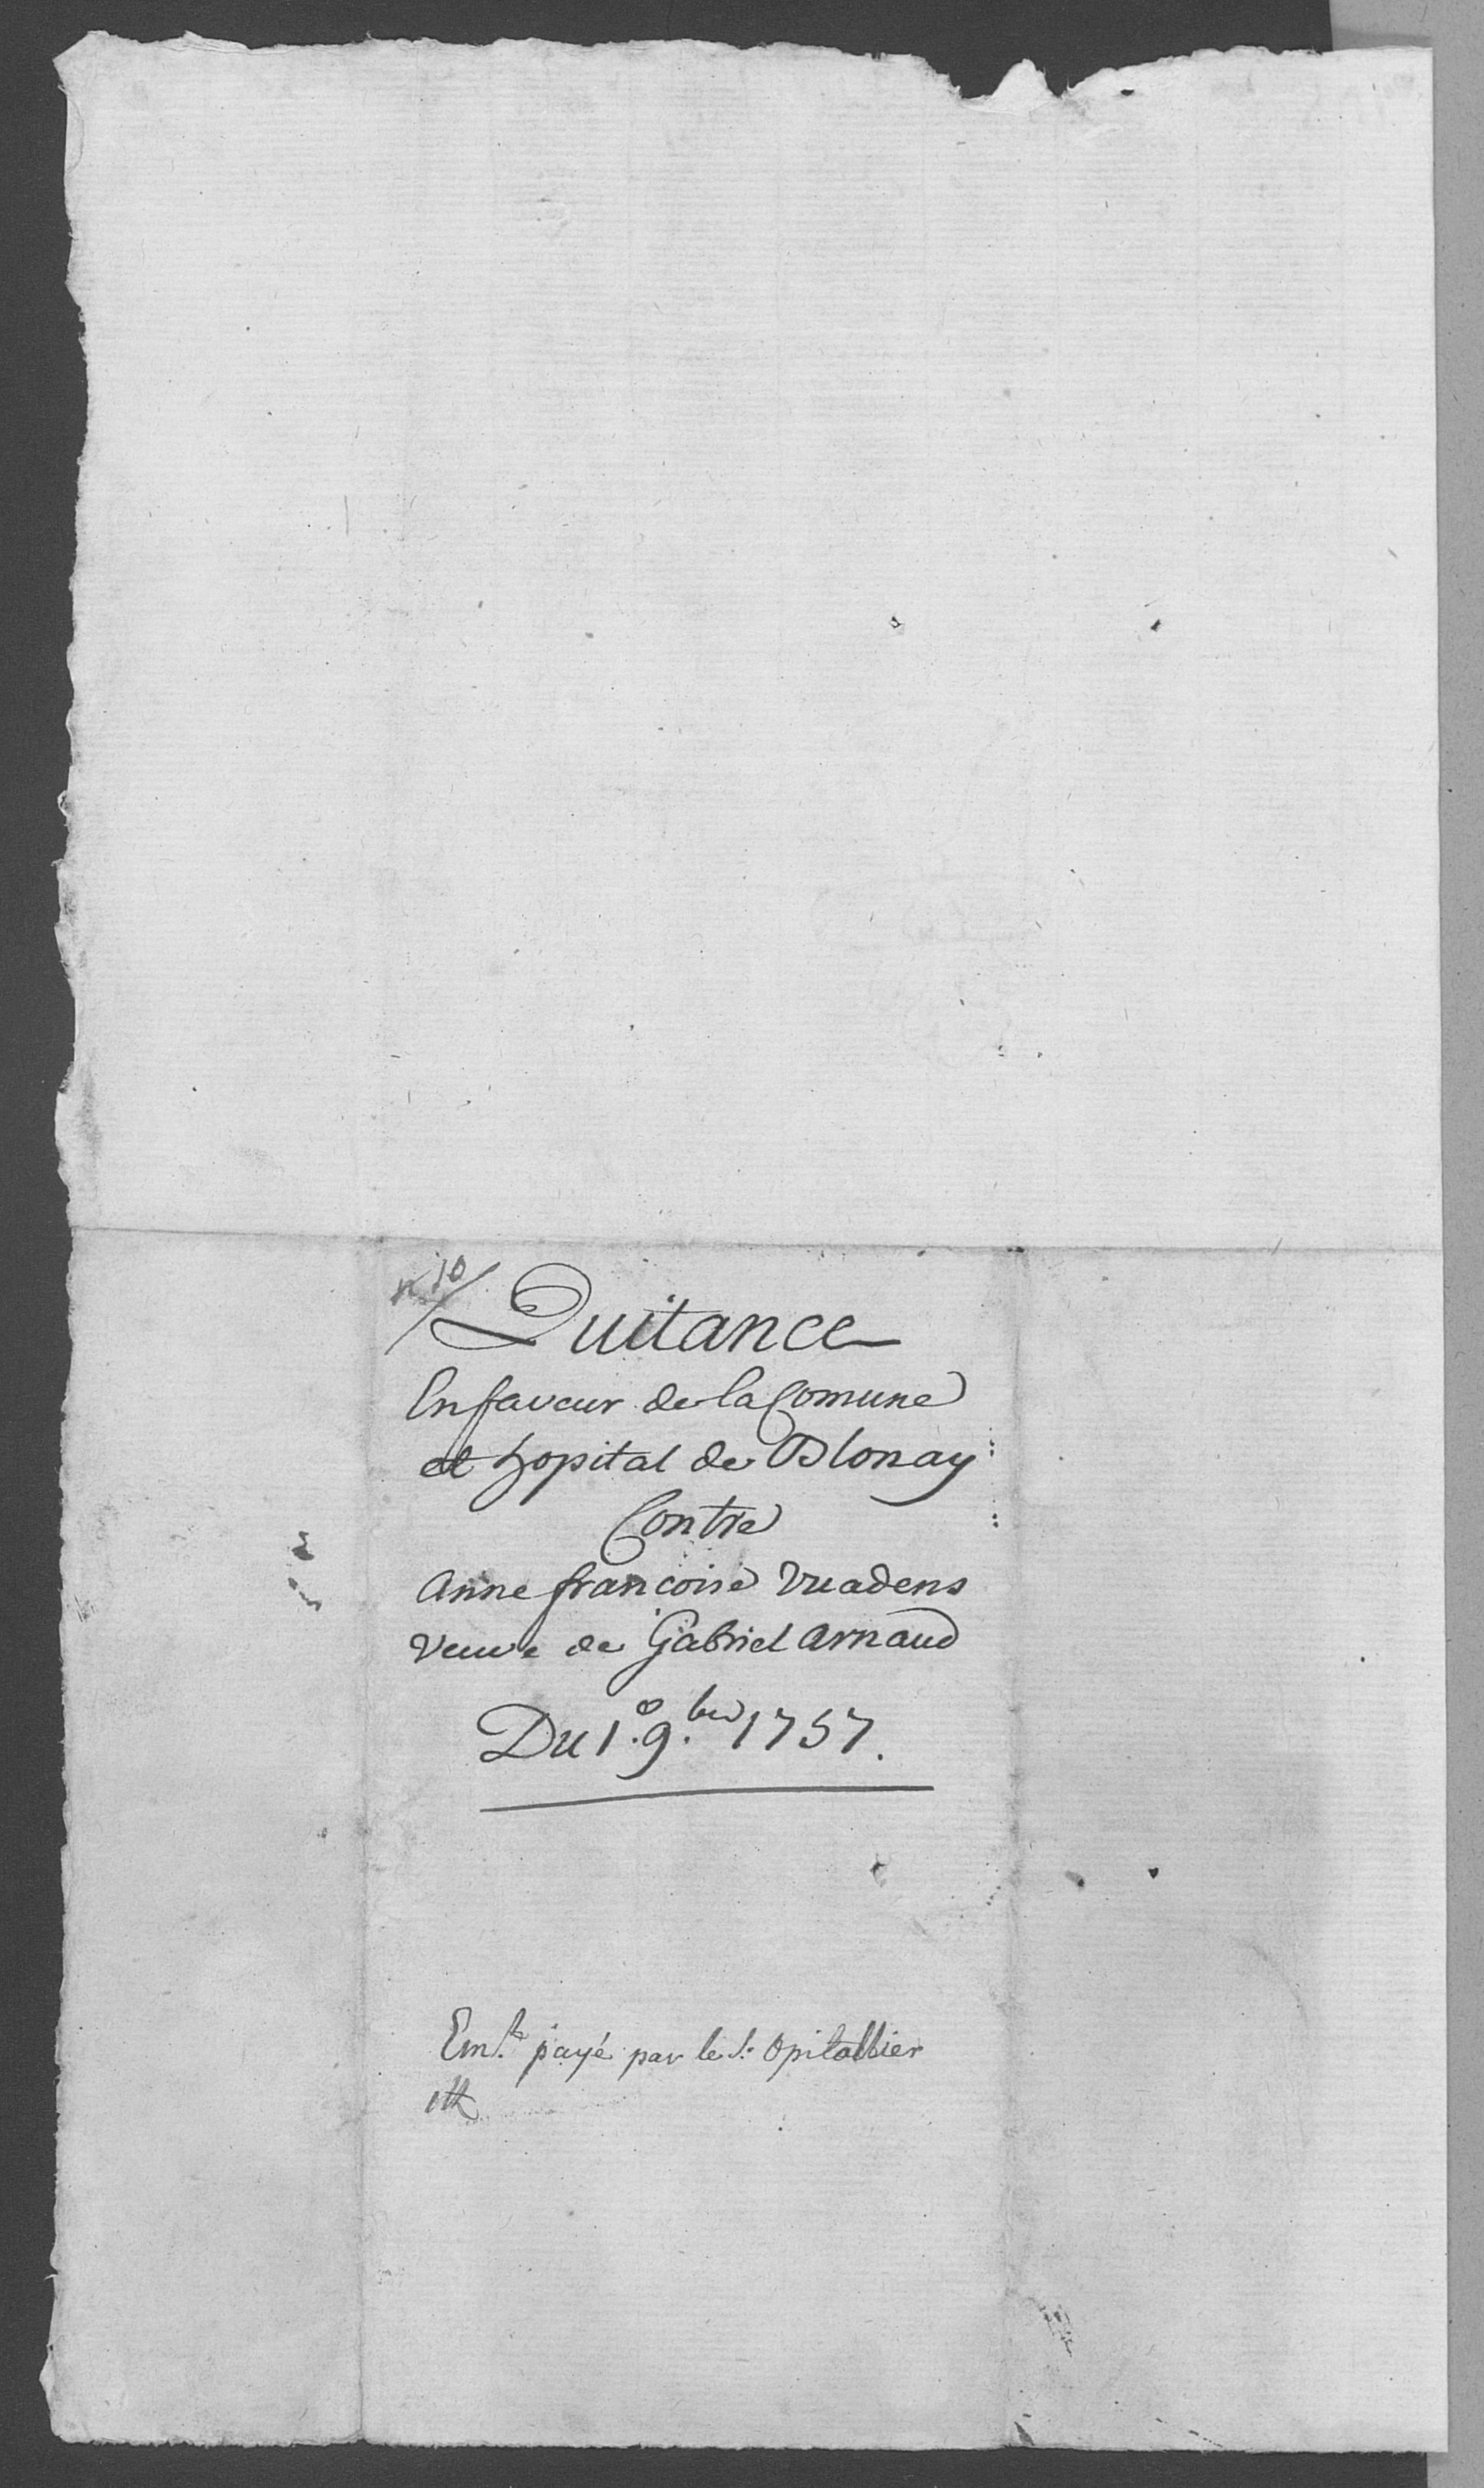 n° 10
Quitance
En faveur de la Comune
et hopital de Blonay
Contre
Anne francoise Vuadens
Veuve de Gabriel Arnaud
Du 1.° 9.bre 1757.
Em.t payé par le Sr. Opitallier